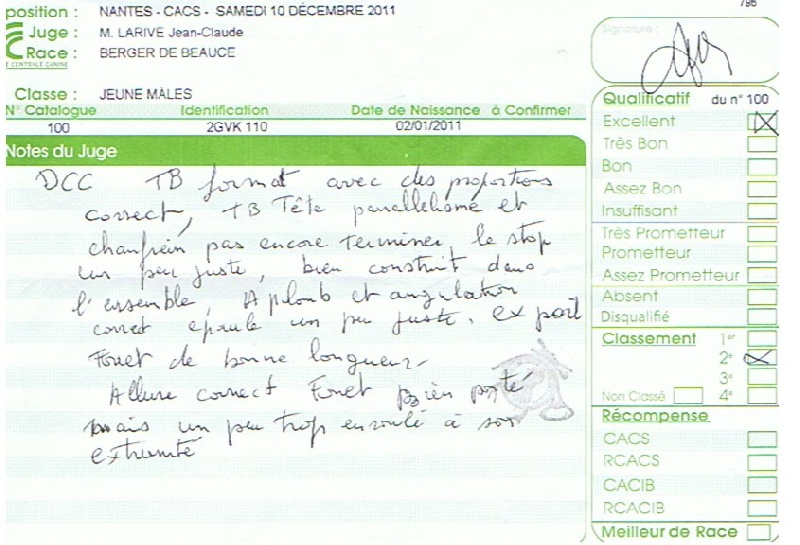 position : NANTES - CACS - SAMEDI 10 DÉCEMBRE 2011
Juge : M. LARIVE Jean-Claude
Race : BERGER DE BEAUCE
E CENTRALE CANINE
Classe : JEUNE MÂLES
N° Catalogue Identification Date de Naissance à Confirmer
100 2GVK 110 02/01/2011
Notes du Juge
DCC TB format avec des proportions
correct, TB Tête parallelisme et
chanfrein pas encore terminer, le stop
un peu juste, bien construit dans
l'ensemble, Aplomb et angulation
correct epaule un peu juste. ex poil
Fouet de bonne longueur
Allure correct Fouet bien porté
mais un peu trop enroulé à son
extrumité
796
Signature :
Qualificatif du n° 100
Excellent
Très Bon
Bon
Assez Bon
Insuffisant
Très Prometteur
Prometteur
Assez Prometteur
Absent
Disqualifié
Classement 1er
2e
3e
Non Classé 4e
Récompense
CACS
RCACS
CACIB
RCACIB
Meilleur de Race